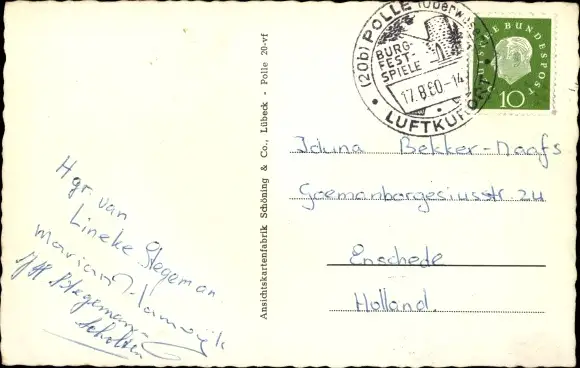 (20b) POLLE (Oberweser)
BURG-
FEST-
SPIELE
17.8.60-14
LUFTKURORT
DEUTSCHE BUNDESPOST
10
Iduna Bekker-Naafs
Goemanborgesiusstr 24
Enschede
Holland.
Ansichtskartenfabrik Schöning & Co., Lübeck - Polle 20-vf
Hgr. van
Lineke Stegeman.
Marian
Stegeman
Scholten